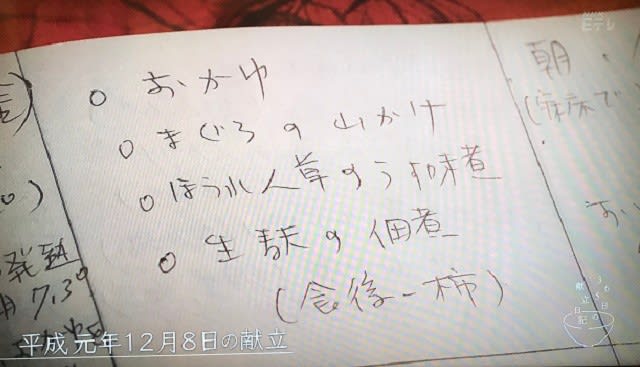 Eテレ
○ おかゆ
○ まぐろの山かけ
○ ほうれん草のうす味煮
○ 生麸の佃煮
(食後ー柿)
朝・
発熱
7.3°
献立日記
平成元年12月8日の献立